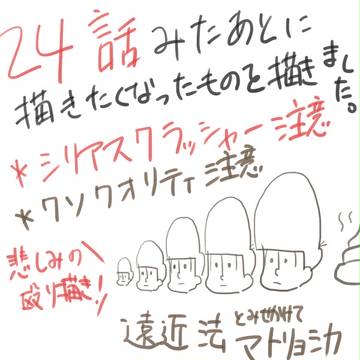 24話みたあとに
描きたくなったものを描きました。
*シリアスクラッシャー注意
*クソクオリティ注意
悲しみの
殴り描き!
遠近法とみせかけて
マトリョシカ